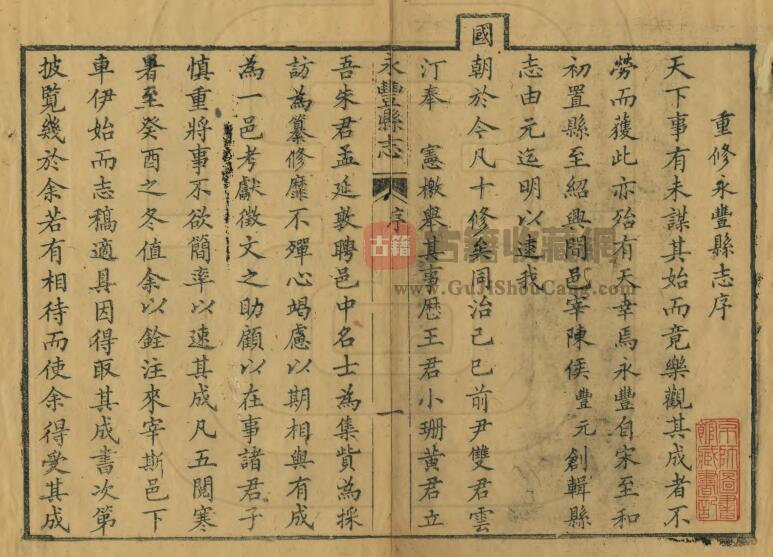 重修永豐縣志序
天下事有未謀其始而竟樂觀其成者不
勞而獲此亦殆有天幸焉永豐自宋至和
初置縣至紹興間邑宰陳侯豐元創輯縣
志由元迄明以逮我
國朝於今凡十修矣同治己巳前尹雙君雲
汀奉憲檄舉其事歷王君小珊黃君立
永豐縣志
序
一
吾朱君孟延敦聘邑中名士為集貲為採
訪為纂修靡不殫心竭慮以期相與有成
為一邑考獻徵文之助顧以在事諸君子
慎重將事不欲簡率以速其成凡五閱寒
暑至癸酉之冬值余以銓注來宰斯邑下
車伊始而志稿適具因得取其成書次第
披覽幾於余若有相待而使余得受其成
古籍
古籍收藏網
www.GuJiShouCang.com